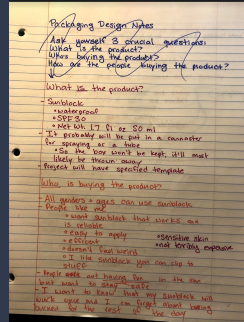 Packaging Design Notes
Ask yourself 3 crucial questions:
What is the product?
Who's buying the product?
How are the people buying the product?
What is the product?
- Sunblock
• waterproof
• SPF 30
• Net Wt. 1.7 fl oz 50 ml
- It probably will be put in a cannoster
for spraying or a tube
• So the box won't be kept, it'll most
likely be thrown away
- Project will have specified template
Who is buying the product?
- All genders + ages can use sunblock
- People like me
• want sunblock that works and
is reliable
• easy to apply
• sensitive skin
• efficent
• not terribly expensive
• doesn't feel weird
• I like sunblock you can clip to
stuff
- People out having fun in the sun
but want to stay safe
- I want to know that my sunblock will
work good and I can forget about being
burned for the rest of the day